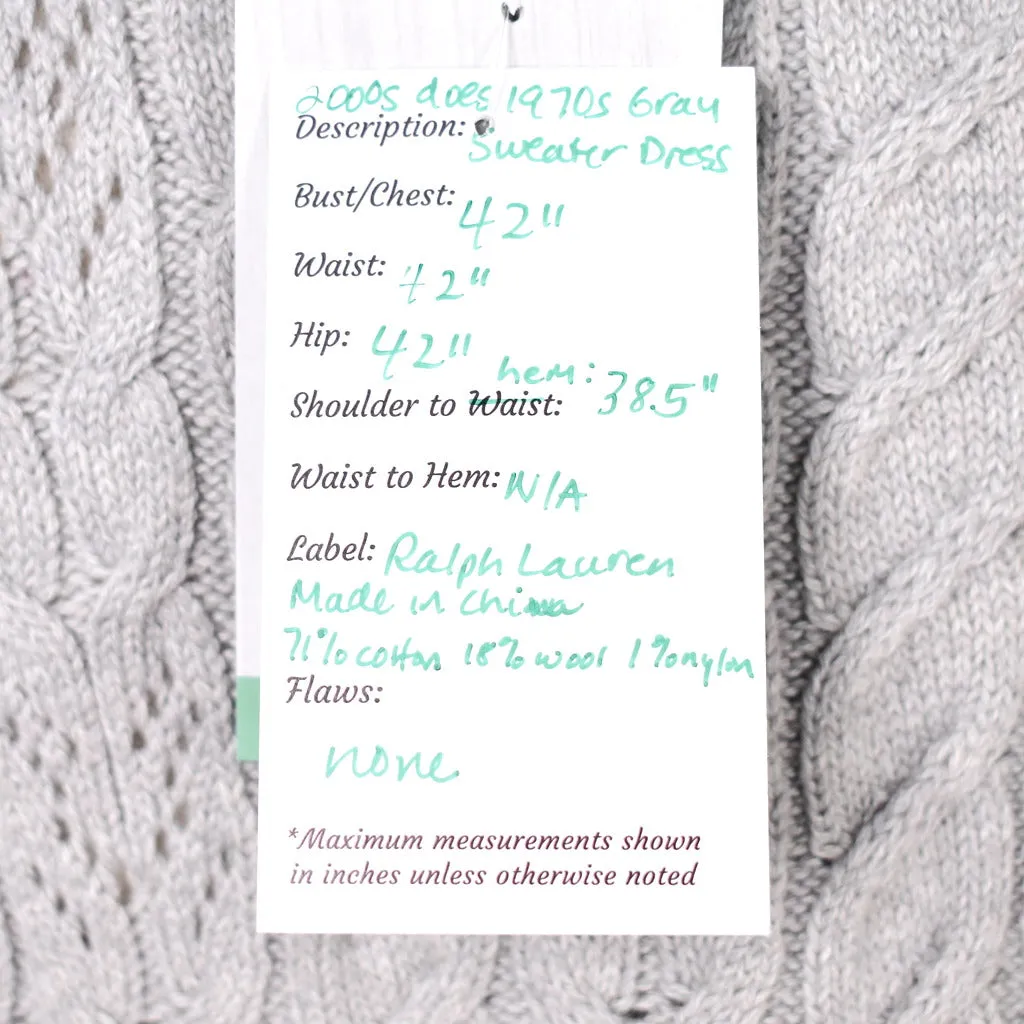 2000s does 1970s Gray
Description: Sweater Dress
Bust/Chest: 42"
Waist: 42"
Hip: 42"
hem: 38.5"
Shoulder to Waist:
Waist to Hem: N/A
Label: Ralph Lauren
Made in China
71% cotton 18% wool 1% nylon
Flaws:
none
*Maximum measurements shown
in inches unless otherwise noted